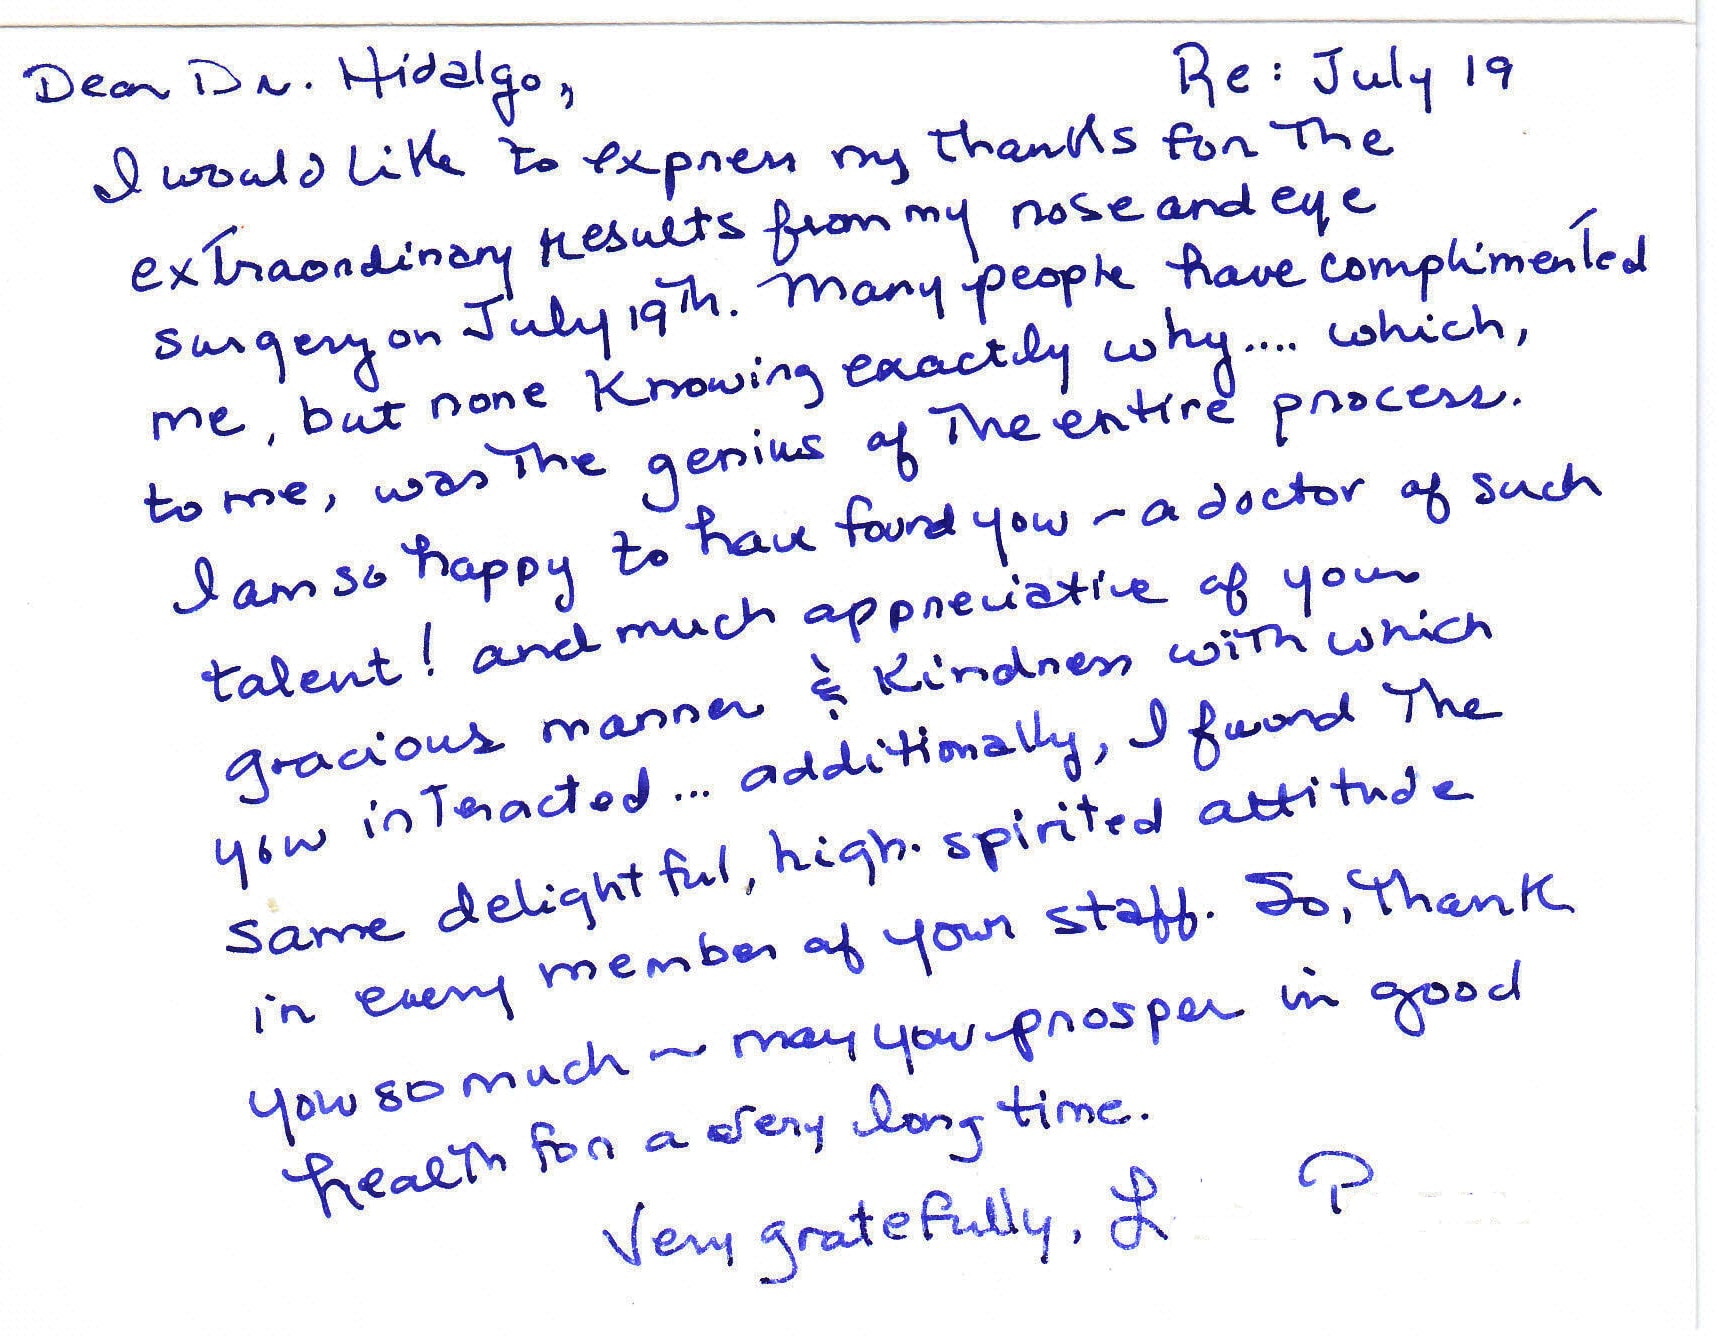 Dear Dr. Hidalgo,
Re: July 19
I would like to express my thanks for the
extraordinary results from my nose and eye
surgery on July 19th. Many people have complimented
me, but none knowing exactly why.... which,
to me, was the genius of the entire process.
I am so happy to have found you ~ a doctor of such
talent! and much appreciative of your
gracious manner & kindness with which
you interacted... additionally, I found the
same delightful, high-spirited attitude
in every member of your staff. So, thank
you so much ~ may you prosper in good
health for a very long time.
Very gratefully, L P